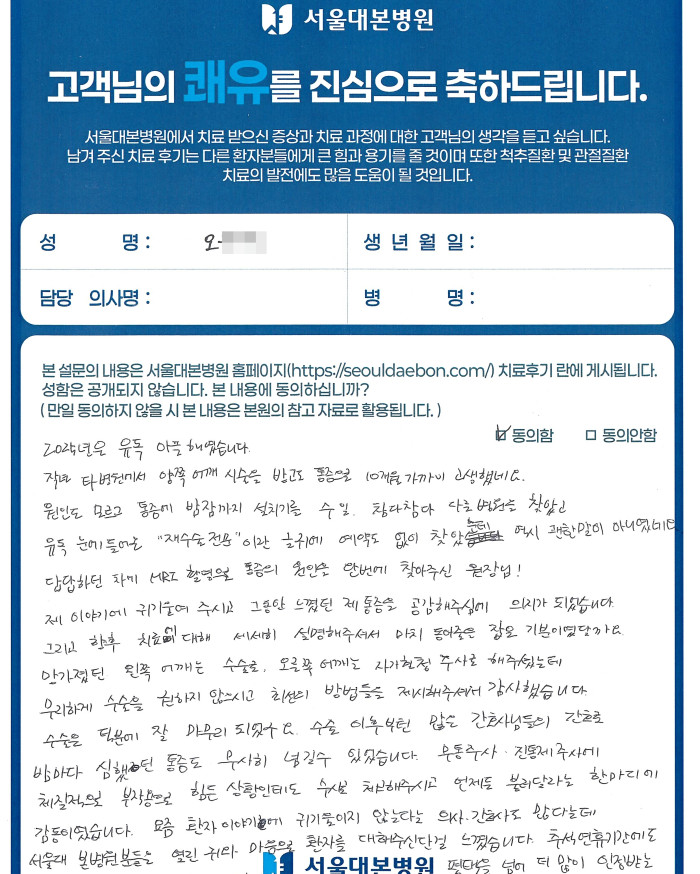 서울대본병원
고객님의 쾌유를 진심으로 축하드립니다.
서울대본병원에서 치료 받으신 증상과 치료 과정에 대한 고객님의 생각을 듣고 싶습니다.
남겨 주신 치료 후기는 다른 환자분들에게 큰 힘과 용기를 줄 것이며 또한 척추질환 및 관절질환
치료의 발전에도 많음 도움이 될 것입니다.
성 명 : 오
생 년 월 일 :
담당 의사명 :
병 명 :
본 설문의 내용은 서울대본병원 홈페이지(https://seouldaebon.com/) 치료후기 란에 게시됩니다.
성함은 공개되지 않습니다. 본 내용에 동의하십니까?
( 만일 동의하지 않을 시 본 내용은 본원의 참고 자료로 활용됩니다. )
동의함 동의안함
유독 아픔 해였습니다.
작년 타병원에서 양쪽 어깨 시술을 받고도 통증으로 10개월 가까이 고생했네요.
원인도 모르고 통증에 밤잠까지 설치기를 수일. 참다참다 다른병원을 찾았고
유독 눈에 들어온 "재수술전문"이란 글귀에 예약도 없이 찾았는데 역시 괜한말이 아니였네요
답답하던 차에 MRI 촬영으로 통증의 원인을 한번에 찾아주신 원장님!
제 이야기에 귀기울여 주시고 그동안 느꼈던 제 통증을 공감해주심에 의지가 되었습니다.
그리고 향후 치료에 대해 세세히 설명해주셔서 마치 돌아온 기분이였달까요.
망가졌던 왼쪽 어깨는 수술로, 오른쪽 어깨는 자가혈청 주사로 해주셨는데
무리하게 수술을 권하지 않으시고 최선의 방법들을 제시해주셔서 감사했습니다
수술을 덕분에 잘 마무리 되었구요. 수술 이후부턴 많은 간호사님들의 간호로
밤마다 심했던 통증도 무사히 넘길수 있었습니다. 무통주사·진통제주사에
체질적으로 부작용으로 힘든 상황인데도 수시로 체크해주시고 언제든 불러달라는 한마디에
감동이였습니다. 요즘 환자이야기에 귀기울이지 않는다는 의사.간호사도 많다는데
서울대 본병원분들은 열린 귀와 마음으로 환자를 대해주신단걸 느꼈습니다. 추석연휴기간에도
서울대본병원
넘어 더 많이 인정받는